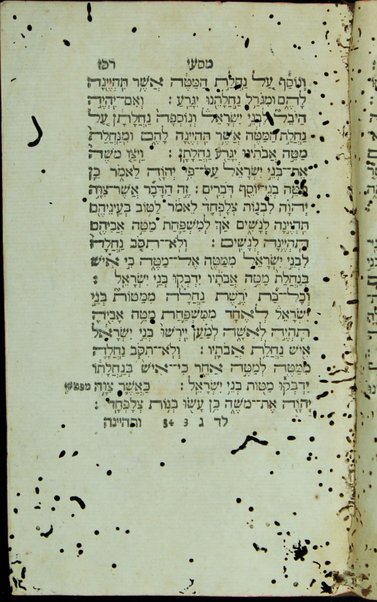 מסעי רכז
וְנוֹסַף עַל נַחֲלַת הַמַּטֶּה אֲשֶׁר תִּהְיֶינָה
לָהֶם וּמִגֹּרַל נַחֲלָתֵנוּ יִגָּרֵעַ׃ וְאִם־יִהְיֶה
הַיֹּבֵל לִבְנֵי יִשְׂרָאֵל וְנוֹסְפָה נַחֲלָתָן עַל
נַחֲלַת הַמַּטֶּה אֲשֶׁר תִּהְיֶינָה לָהֶם וּמִנַּחֲלַת
מַטֵּה אֲבֹתֵינוּ יִגָּרַע נַחֲלָתָן׃ וַיְצַו מֹשֶׁה
אֶת־בְּנֵי יִשְׂרָאֵל עַל־פִּי יְהוָֹה לֵאמֹר כֵּן
מַטֵּה בְנֵי־יוֹסֵף דֹּבְרִים׃ זֶה הַדָּבָר אֲשֶׁר־צִוָּה
יְהוָֹה לִבְנוֹת צְלָפְחָד לֵאמֹר לַטּוֹב בְּעֵינֵיהֶם
תִּהְיֶינָה לְנָשִׁים אַךְ לְמִשְׁפַּחַת מַטֵּה אֲבִיהֶם
תִּהְיֶינָה לְנָשִׁים׃ וְלֹא־תִסֹּב נַחֲלָה
לִבְנֵי יִשְׂרָאֵל מִמַּטֶּה אֶל־מַטֶּה כִּי אִישׁ
בְּנַחֲלַת מַטֵּה אֲבֹתָיו יִדְבְּקוּ בְּנֵי יִשְׂרָאֵל׃
וְכָל־בַּת יֹרֶשֶׁת נַחֲלָה מִמַּטּוֹת בְּנֵי
יִשְׂרָאֵל לְאֶחָד מִמִּשְׁפַּחַת מַטֵּה אָבִיהָ
תִּהְיֶה לְאִשָּׁה לְמַעַן יִירְשׁוּ בְּנֵי יִשְׂרָאֵל
אִישׁ נַחֲלַת אֲבֹתָיו׃ וְלֹא־תִסֹּב נַחֲלָה
מִמַּטֶּה לְמַטֶּה אַחֵר כִּי־אִישׁ בְּנַחֲלָתוֹ
יִדְבְּקוּ מַטּוֹת בְּנֵי יִשְׂרָאֵל׃ כַּאֲשֶׁר צִוָּה מפטיר
יְהוָֹה אֶת־מֹשֶׁה כֵּן עָשׂוּ בְּנוֹת צְלָפְחָד׃
לד ג 34 3 ותהיינה